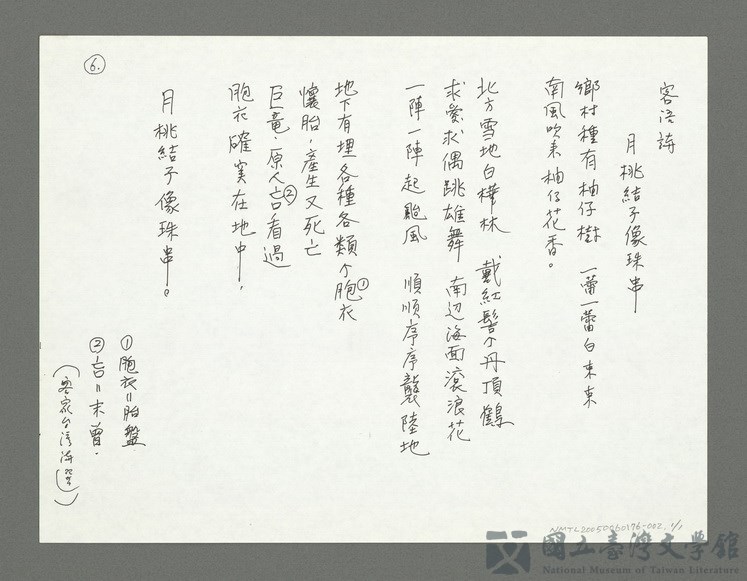 ⑥
客语詩
月桃結子像珠串
鄉村種有柚仔樹 一蕾一蕾白束束
南風吹来柚仔花香。
北方雪地白樺林 戴紅髻个丹頂鶴
求爱求偶跳雄舞 南辺海面滾浪花
一陣一陣起颱風 順順序序襲陸地
地下有埋各種各類个胞衣①
懷胎,產生又死亡
巨竜、原人吂②看過
胞衣確実在地中,
月桃結子像珠串。
①胞衣=胎盤
②吂=末曾.
(客家台湾詩選)
NMTL20050060176-002, 1/1
國立臺灣文學館
National Museum of Taiwan Literature